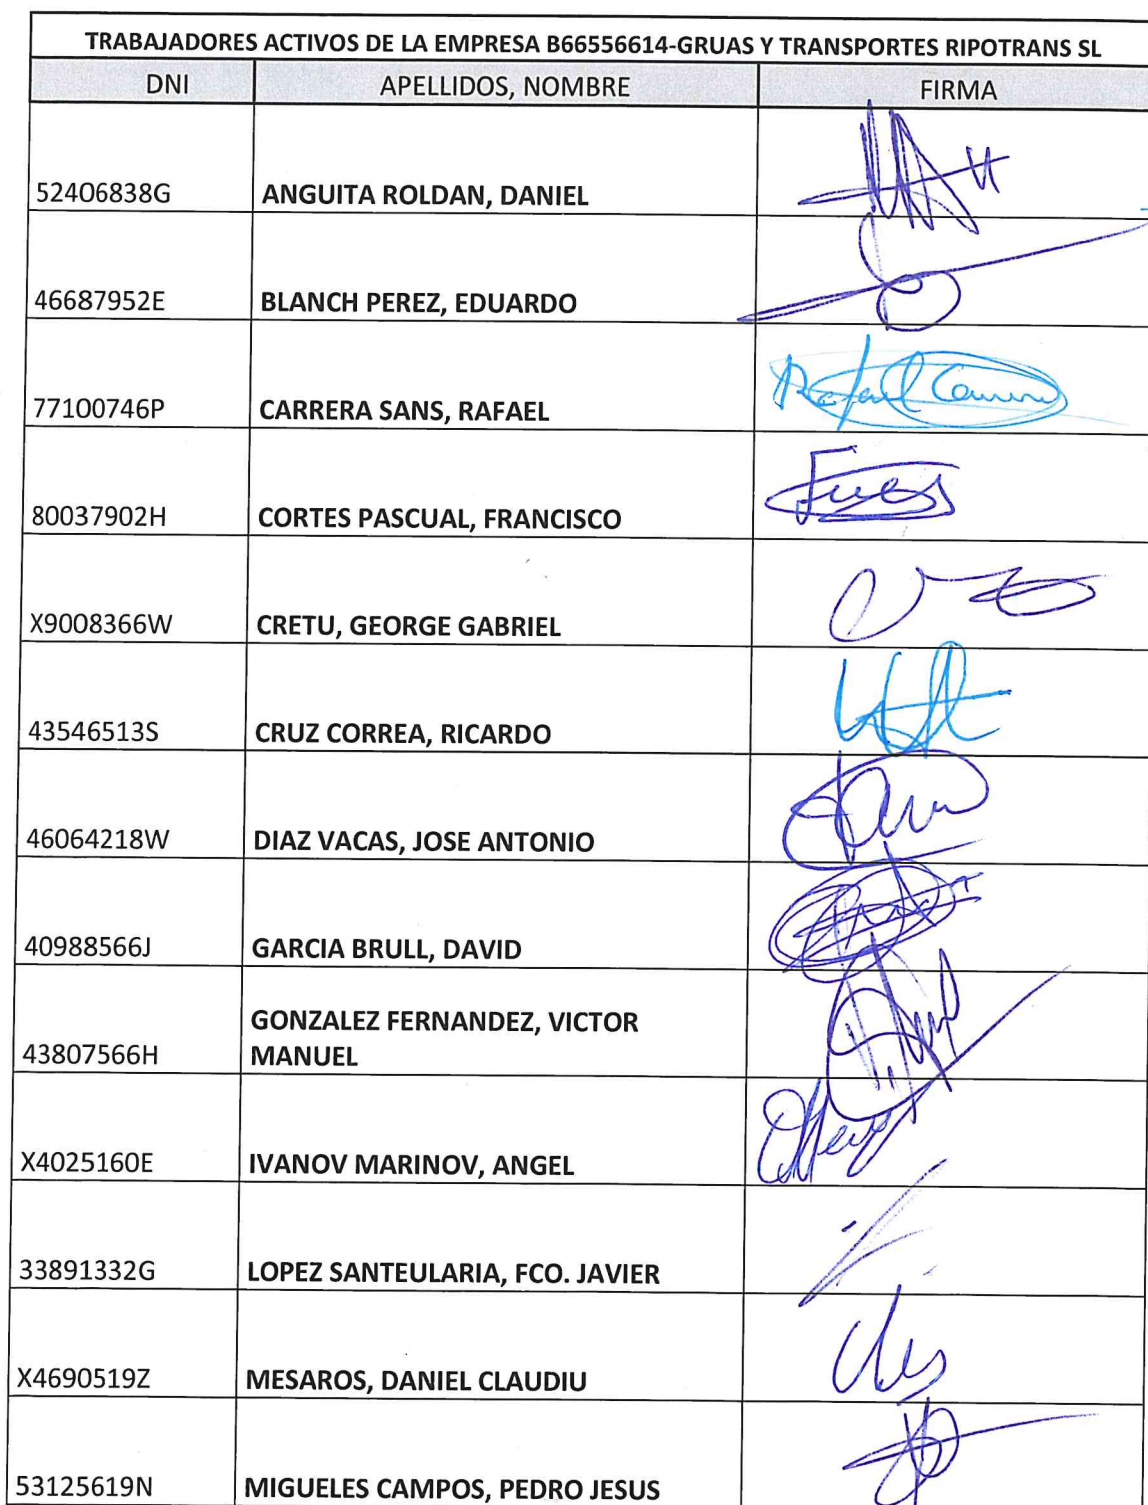 TRABAJADORES ACTIVOS DE LA EMPRESA B66556614-GRUAS Y TRANSPORTES RIPOTRANS SL
DNI APELLIDOS, NOMBRE FIRMA
52406838G ANGUITA ROLDAN, DANIEL
46687952E BLANCH PEREZ, EDUARDO
77100746P CARRERA SANS, RAFAEL Rafael
80037902H CORTES PASCUAL, FRANCISCO
X9008366W CRETU, GEORGE GABRIEL
43546513S CRUZ CORREA, RICARDO
46064218W DIAZ VACAS, JOSE ANTONIO
40988566J GARCIA BRULL, DAVID
GONZALEZ FERNANDEZ, VICTOR
43807566H MANUEL
X4025160E IVANOV MARINOV, ANGEL
33891332G LOPEZ SANTEULARIA, FCO. JAVIER
X4690519Z MESAROS, DANIEL CLAUDIU
53125619N MIGUELES CAMPOS, PEDRO JESUS